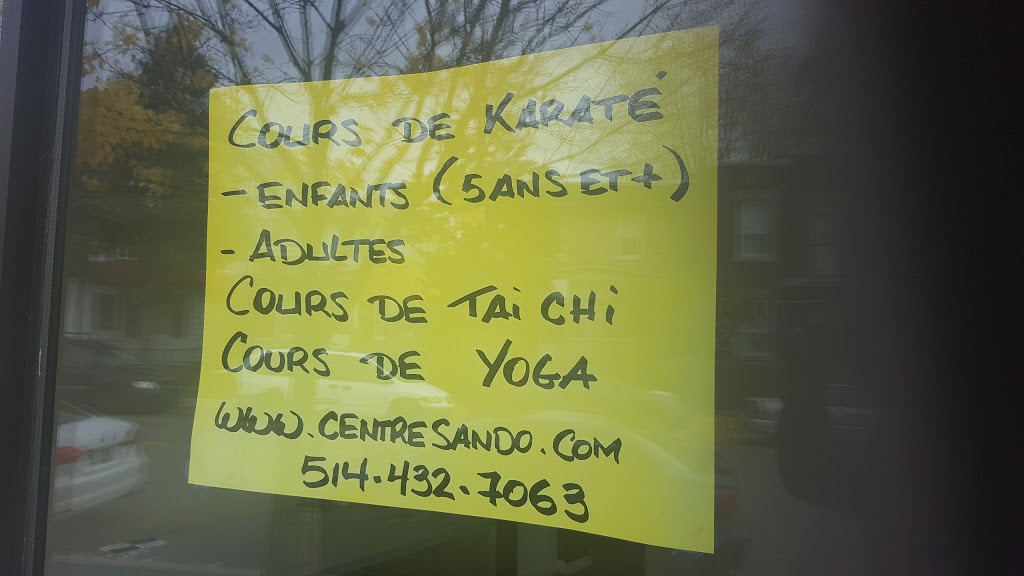 COURS DE KARATÉ
- ENFANTS (5 ANS ET +)
- ADULTES
COURS DE TAi CHi
COURS DE YOGA
WWW.CENTRESANDO.COM
514.432.7063